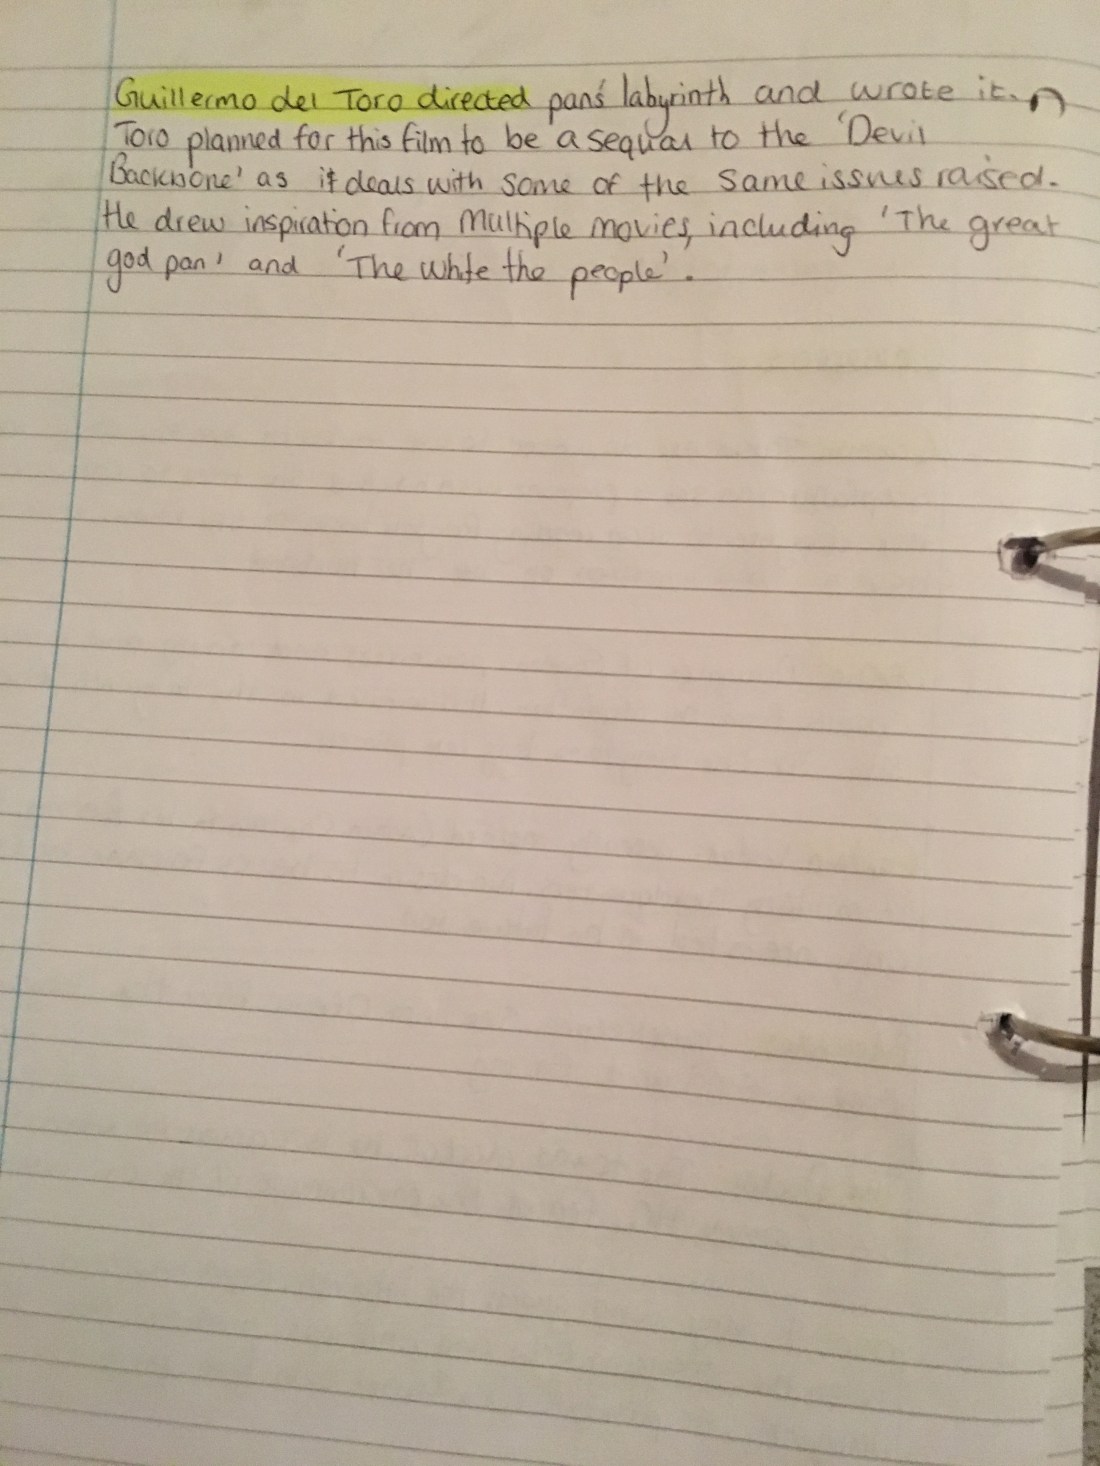 Guillermo del Toro directed pans' labyrinth and wrote it.
Toro planned for this film to be a sequal to the 'Devil
Backbone' as it deals with some of the same issues raised.
He drew inspiration from multiple movies, including 'The great
god pan' and 'The white the people'.